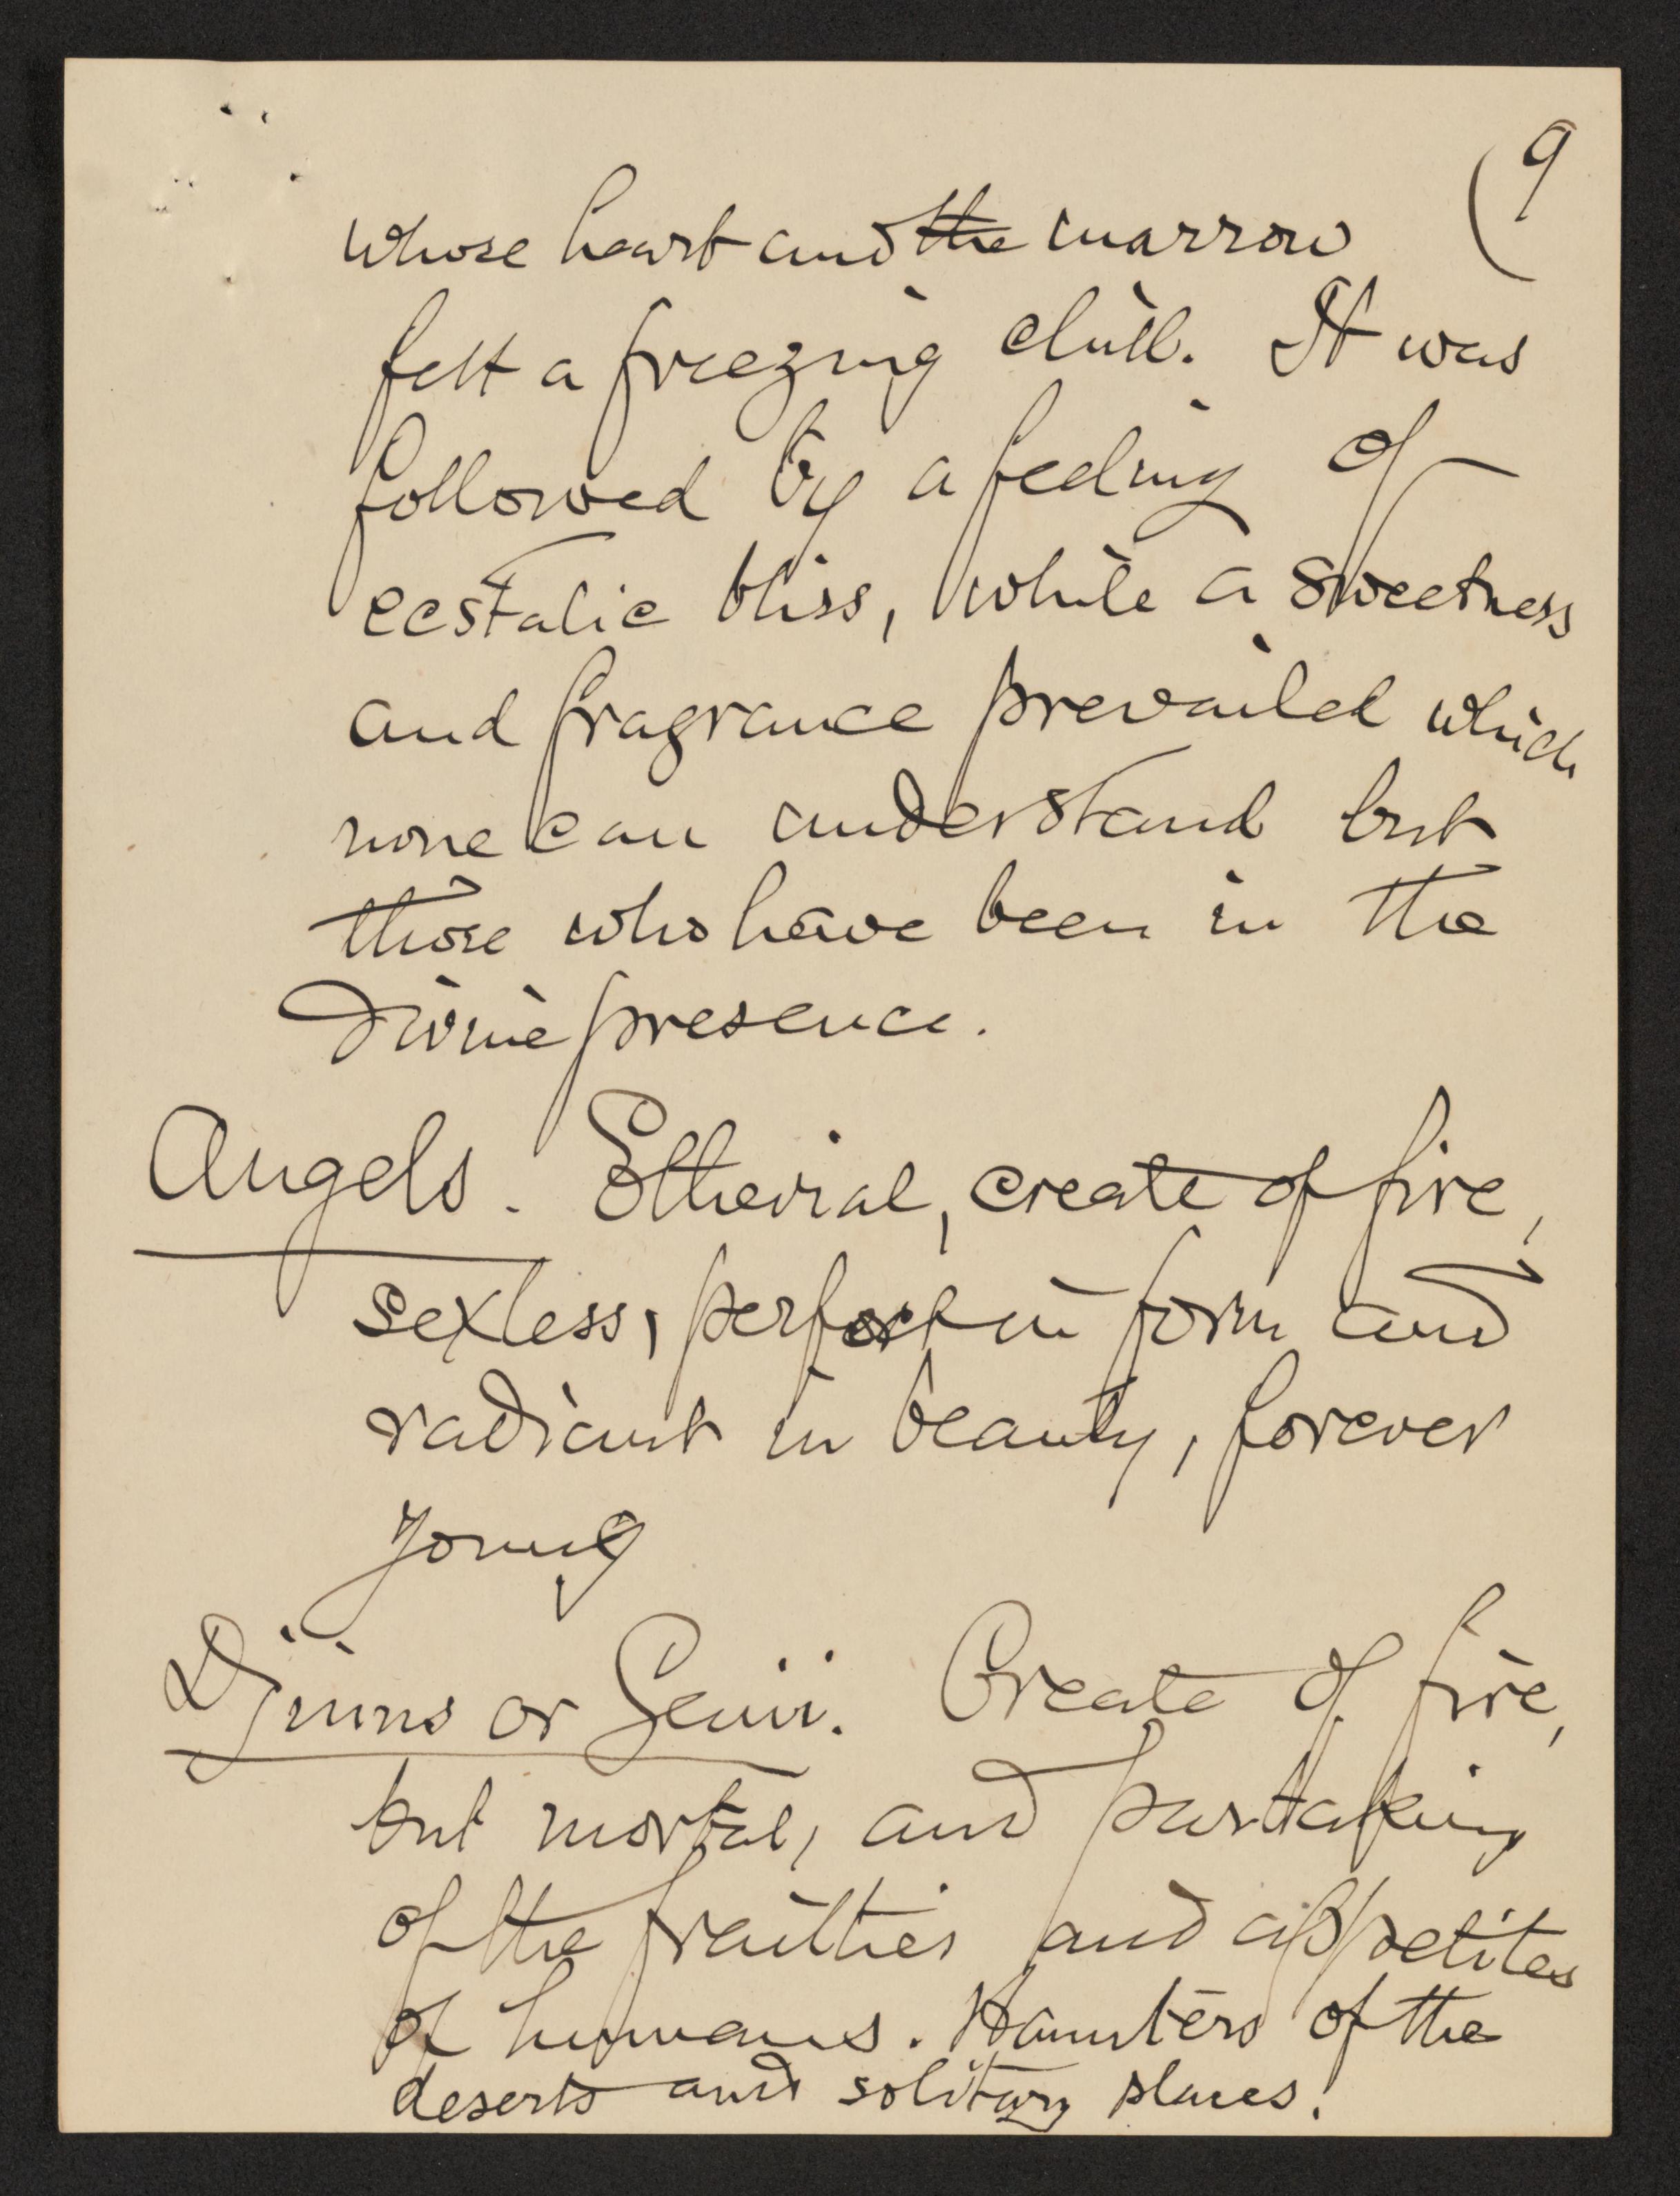 (9
whose heart and the marrow
felt a freezing chill. It was
followed by a feeling of
ecstatic bliss, while a sweetness
and fragrance prevailed which
none can understand but
those who have been in the
Divine presence.
Angels. Etherial, create of fire,
sexless, perfect in form and
radiant in beauty, forever
young
Djinns or Genii. Create of fire,
but mortal, and partaking
of the frailties and appetites
of humans. Haunters of the
deserts and solitary places.